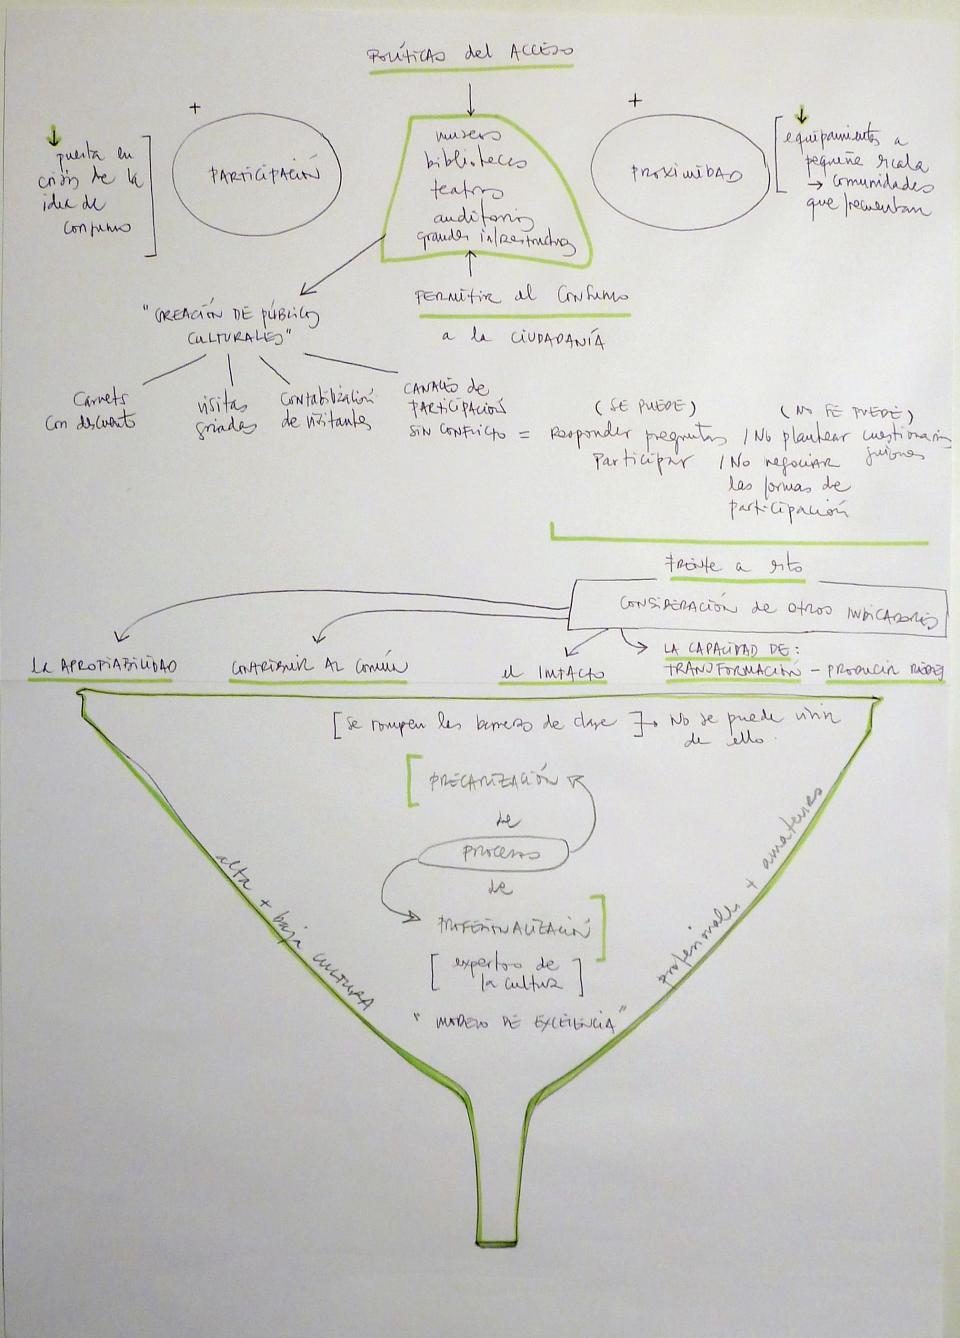 POLÍTICAS del ACCESO
+
PARTICIPACIÓN
puesta en
crisis de la
idea de
consumo
museos
bibliotecas
teatros
auditorios
grandes infraestructuras
+
PROXIMIDAD
equipamientos a
pequeña escala
→ comunidades
que frecuentan
PERMITIR al CONSUMO
a la CIUDADANÍA
"CREACIÓN DE PÚBLICOS
CULTURALES"
Carnets
con descuento
visitas
guiadas
CONTABILIZACIÓN
de visitantes
CANALES de
PARTICIPACIÓN
SIN CONFLICTO =
(SE PUEDE)
Responder preguntas
Participar
(NO SE PUEDE)
/ No plantear cuestionarios
guiones
/ No negociar
las formas de
participación
FRENTE a esto
CONSIDERACIÓN de OTROS INDICADORES
la APROPIABILIDAD
CONTRIBUIR AL COMÚN
el IMPACTO
LA CAPACIDAD DE:
TRANSFORMACIÓN - PRODUCIR REDES
[Se rompen las barreras de clase] → No se puede vivir
de ello.
[PRECARIZACIÓN
de
PROCESOS
de
PROFESIONALIZACIÓN]
[expertos de
la cultura]
"MODELO DE EXCELENCIA"
alta + baja CULTURA
profesionales + amateurs